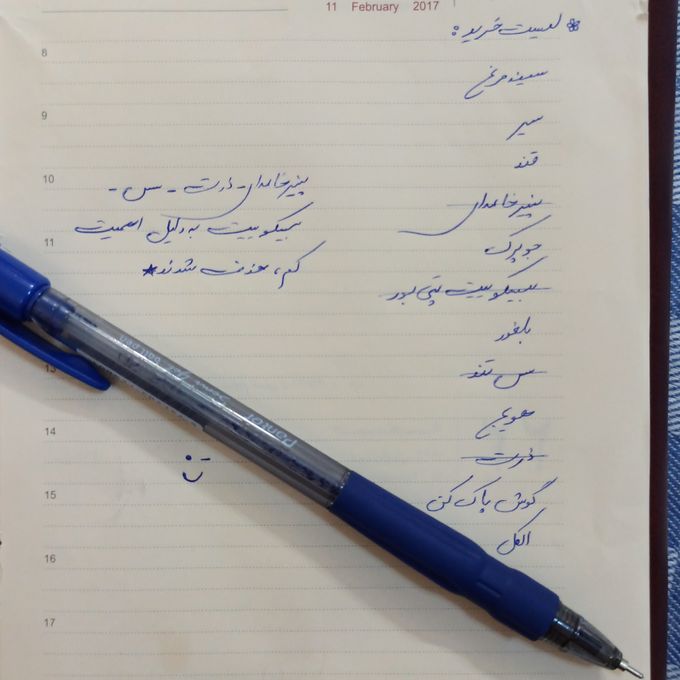 11 February 2017
لیست خرید :
سینه مرغ
سیر
قند
پنیر خامه‌ای
جو پرک
بیسکوییت پتی بور
بلغور
سس تند
هویج
ذرت
گوش پاک کن
الکل
پنیر خامه‌ای - ذرت - سس -
بیسکوییت به دلیل اهمیت
کم، حذف شدند*
8
9
10
11
13
14
15
16
17
panter